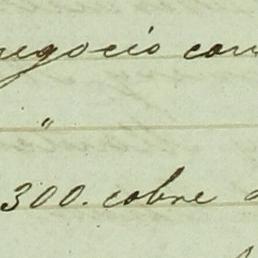 negocio
"
300. cobre